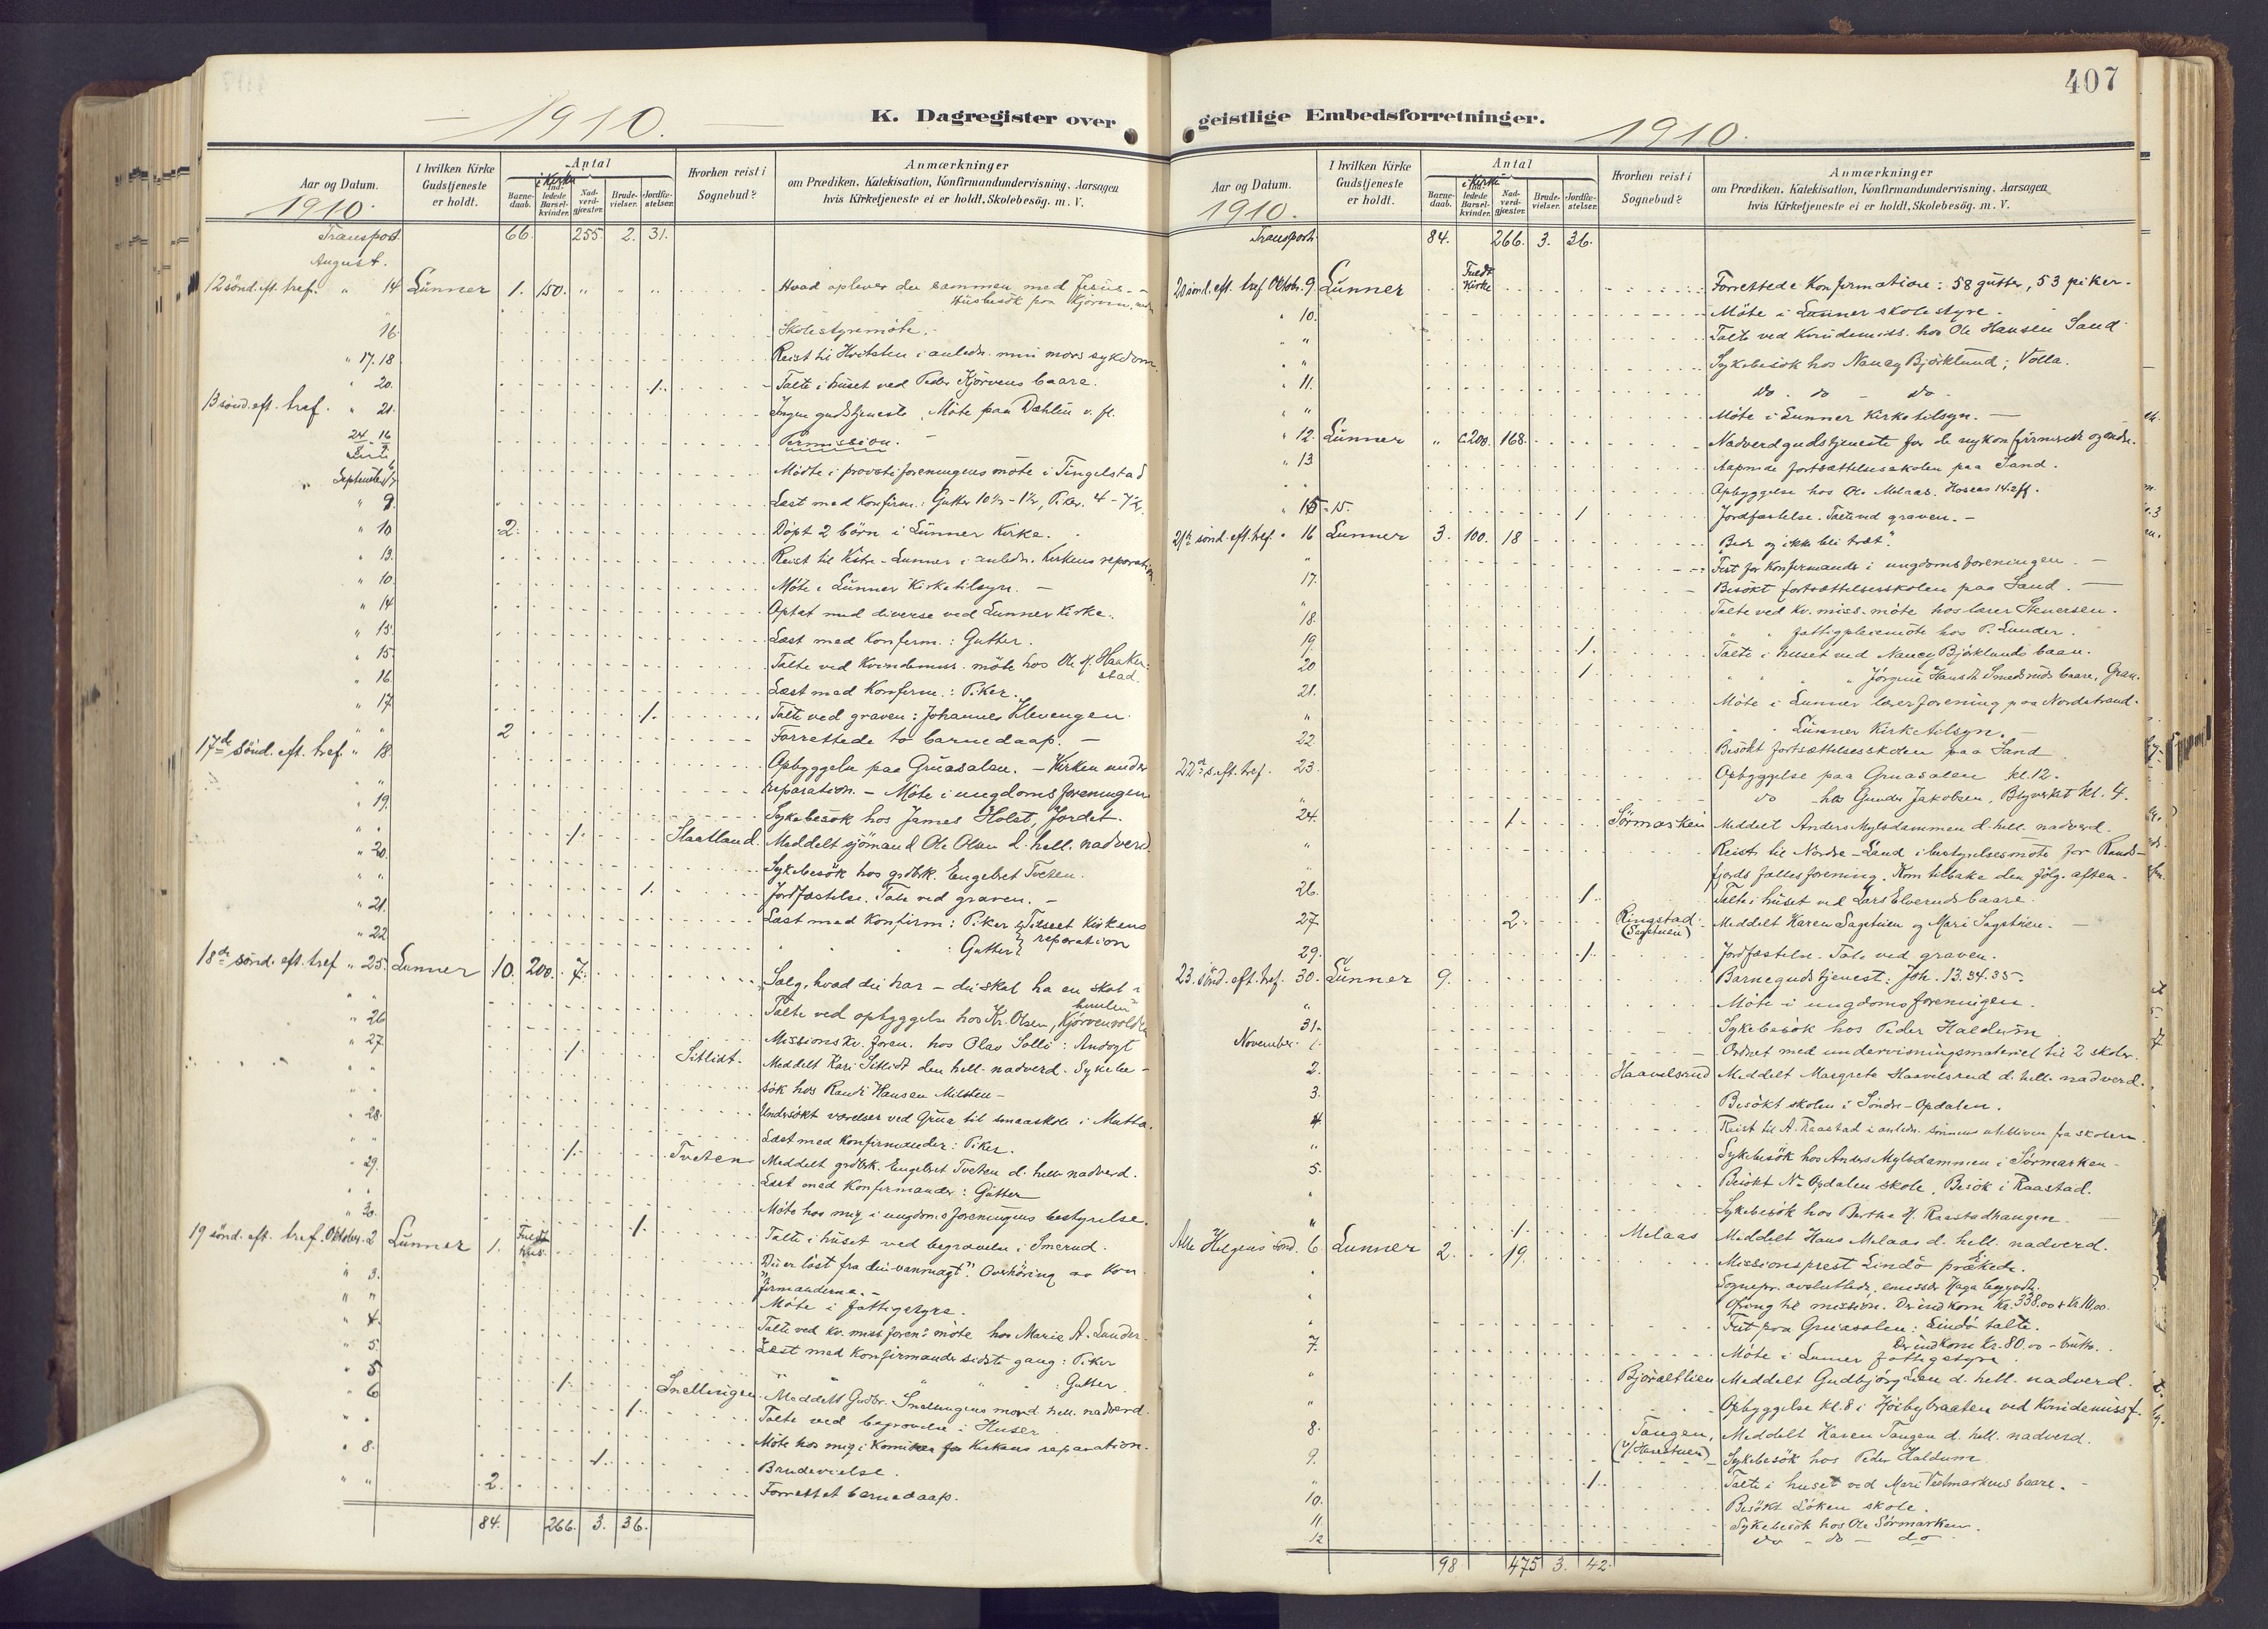 407
1910.
K. Dagregister over
geistlige Embedsforretninger.
1910.
Aar og Datum.
1910.
I hvilken Kirke Gudstjeneste er holdt.
Antal
i Kirke
Barne-daab.
Ind-ledede Barsel-kvinder.
Nad-verd-gjæster.
Brude-vielser.
Jordfæ-stelser.
Hvorhen reist i Sognebud?
Anmærkninger
om Prædiken, Katekisation, Konfirmandundervisning, Aarsagen
hvis Kirketjeneste ei er holdt, Skolebesög. m. V.
Transport. 66. 255. 2. 31.
August.
12 sönd. eft. tref. " 14 Lunner 1. 150. " " " Hvad oplever du sammen med Jesus -
Husbesök paa Kjörven
16. Skolestyremöte.
" 17. 18 Reist til Hvitsten i anledn. min mors sykdom.
" 20. 1. Talte i huset ved Peder Kjörvens baare.
13 sönd. eft. tref. " 21. Ingen gudstjeneste. Möte paa Dæhlin v. fl.
24/8 - 16/9 Permission.
September Mödte i provstiforeningens möte i Tingelstad
" 9. Læst med Konfirm.: Gutter 10½ - 1½, Piker 4 - 7½.
" 10 2. Döpt 2 börn i Lunner Kirke.
" 13. Reist til Vestre-Lunner i anledn. Kirkens reparation.
" 10. Möte i Lunner Kirketilsyn. -
" 14 Optat med diverse ved Lunner Kirke.
" 15. Læst med Konfirm.: Gutter.
" 15. Talte ved Kvindemiss. möte hos Ole H. Haakenstad.
" 16. Læst med Konfirm.: Piker.
" 17. 1. Talte ved graven: Johannes Klevengen.
" " 2 Forrettede to barnedaap. -
17de sönd. eft. tref. " 18. Opbyggelse paa Gruasalen. - Kirken under
reparation. - Möte i ungdomsforeningen
" 19. Sykebesök hos James Holst, Jordet.
" " 1. Staatland. Meddelt sjömand Ole Olsen d. hell. nadverd.
" 20. Sykebesök hos grdbr. Engebret Tveten.
" " 1. Jordfæstelse. Tale ved graven. -
" 21. Læst med Konfirm: Piker } Tilseet Kirkens
" 22 " " " : Gutter } reparation
18de sönd. eft. tref. " 25. Lunner 10. 200. 7. Sælg, hvad du har - du skal ha en skat i himlen
" " Talte ved opbyggelse hos Kr. Olsen, Kjörvenvolden
" 26 Missionskv. foren. hos Olav Solli: Andagt
" 27. 1. Sitlidt. Meddelt Kari Sitlidt den hell. nadverd. Sykebe-
sök hos Randi Hansen Milsten -
" 28. Undersökt værelser ved Grua til smaaskole i Mutta.
" " Læst med Konfirmander: Piker.
" 29. 1. Tveten Meddelt grdbr. Engebret Tveten d. hell. nadverd.
" " Læst med Konfirmander: Gutter
" 30. Möte hos mig i ungdomsforeningens bestyrelse.
1. Talte i huset ved begravelse i Smerud.
19 sönd. eft. tref. Oktober. 2 Lunner 1. Fuldt hus. "Du er löst fra din vanmagt". Overhöring av Kon-
firmanderne. -
" 3. Möte i fattigstyre.
" " Talte ved kv. miss. foren.s möte hos Marie A. Lunder.
" 4. Læst med Konfirmander sidste gang: Piker
" 5. " " " " " : Gutter
" 5 1. Snellingen Meddelt Gudbr. Snellingens mor d. hell. nadverd.
" 6 1. Talte ved begravelse i Huser
" " Möte hos mig i Komiteen for Kirkens reparation.
" 8. 1. Brudevielse.
" " 2. Forrettet barnedaap.
84. 266. 3. 36.
Aar og Datum.
1910.
I hvilken Kirke Gudstjeneste er holdt.
Antal
i Kirke
Barne-daab.
Ind-ledede Barsel-kvinder.
Nad-verd-gjæster.
Brude-vielser.
Jordfæ-stelser.
Hvorhen reist i Sognebud?
Anmærkninger
om Prædiken, Katekisation, Konfirmandundervisning, Aarsagen
hvis Kirketjeneste ei er holdt, Skolebesög. m. V.
Transport. 84. 266. 3. 36.
20 sönd. eft. tref. Oktob. 9. Lunner Fuldt Kirke Forrettede Konfirmation: 58 gutter, 53 piker.
" 10. Möte i Lunner skolestyre.
" " Talte ved Kvindemiss. hos Ole Hansen Sand
" " Sykebesök hos Nancy Björklund; Volla.
" 11. do. do - do -
" " Möte i Lunner Kirketilsyn. -
" 12. Lunner " c.200. 168. Nadverdgudstjeneste for de nykonfirmerede og andre.
" 13 Aapnede fortsættelsesskolen paa Sand.
" " Opbyggelse hos Ole Melaas. Hoseas 14.2ff.
" 15 - 15. 1 Jordfæstelse. Talte ved graven. -
21de sönd. eft. tref. " 16 Lunner 3. 100. 18 "Bede og ikke bli træt".
" Fest for Konfirmander i ungdomsforeningen. -
17. Besökt fortsættelsesskolen paa Sand. -
" Talte ved kv. miss. möte hos lærer Stenersen.
18. " " fattigpleiemöte hos P. Lunder.
19. 1. Talte i huset ved Nancy Björklunds baare.
20 1 " " " " Jörgine Hansdt Smedsruds baare, Gran.
21. Möte i Lunner lærerforening paa Nordstrand.
" " Lunner Kirketilsyn. -
22 Besökt fortsættelsesskolen paa Sand
22de s. eft. tref. 23. Opbyggelse paa Gruasalen kl. 12.
" do hos Gunder Jakobsen, Blyverket kl. 4.
24. 1. Sörmarken Meddelt Anders Mylsdammen d. hell. nadverd.
" Reiste til Nordre-Land i bestyrelsesmöte for Rands-
fjords fællesforening. Kom tilbake den fölg. aften.
26. 1. Talte i huset ved Lars Elveruds baare.
27. 2. Ringstad (Sagstuen) Meddelt Karen Sagstuen og Mari Sagstuen. -
29. 1. Jordfæstelse. Tale ved graven.
23. sönd. eft. tref. 30. Lunner 9. Barnegudstjenest: Joh. 13.34.35.
" Möte i ungdomsforeningen.
31. Sykebesök hos Peder Haldum
November. 1. Ordnet med undervisningsmateriel til 2 skoler.
2. Haavelsrud Meddelt Margrete Haavelsrud d. hell. nadverd.
3. Besökt skolen i Söndre-Opdalen.
4. Reist til A. Raastad i anledn. sönnens utebliven fra skolen.
" Sykebesök hos Anders Mylsdammen i Sörmarken -
5. Besökt N. Opdalen skole. Besök i Raastad.
" Sykebesök hos Berthe H. Raastadhaugen. -
" 1. Melaas Meddelt Hans Melaas d. hell. nadverd.
Alle Helgens sönd. 6 Lunner 2. 19. Missionsprest Lindö prækede.
" Sognepr. avsluttede, emissær Haga begyndte.
" Ofring til mission. Der indkom Kr. 338.00 + Kr. 10.00.
" Fest paa Gruasalen: Lindö talte.
Der indkom Kr. 80.00 - brutto.
7. Möte i Lunner fattigstyre.
" Björaltlien Meddelt Gudbjörg d. hell. nadverd.
" Opbyggelse kl. 8 i Höibybraaten ved Kvindemissf.
8. Tangen, (v/ Harestuen) Meddelt Karen Tangen d. hell. nadverd.
9. Sykebesök hos Peder Haldum.
" 1. Talte i huset ved Mari Vestmarkens baare. -
10. Besökt Löken skole.
11 Sykebesök hos Ole Sörmarken.
12 do - do - do
98 475 3. 42.